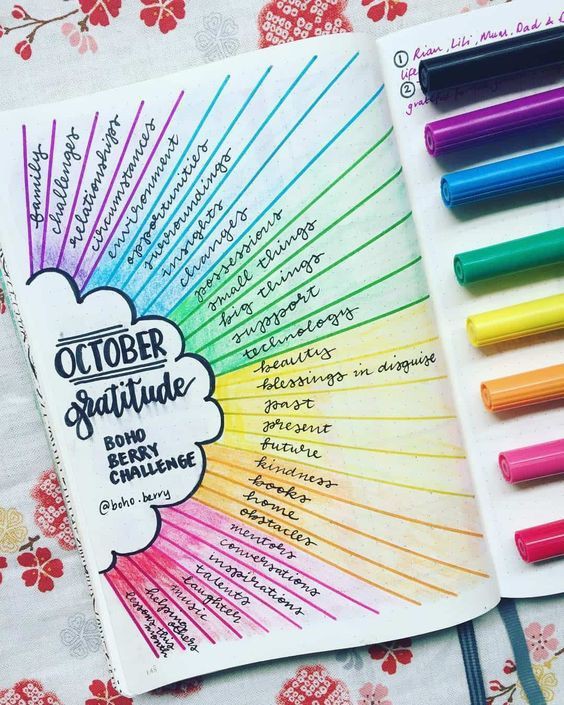 family
challenges
relationships
circumstances
environment
opportunities
surroundings
insights
changes
possessions
small things
big things
support
technology
beauty
blessings in disguise
past
present
future
kindness
books
home
obstacles
mentors
conversations
inspirations
talents
laughter
music
helping
others
lessons this
month
OCTOBER
gratitude
BOHO
BERRY
CHALLENGE
@boho.berry
148
① Rian, Lili, Mum, Dad &
life
②
grateful for